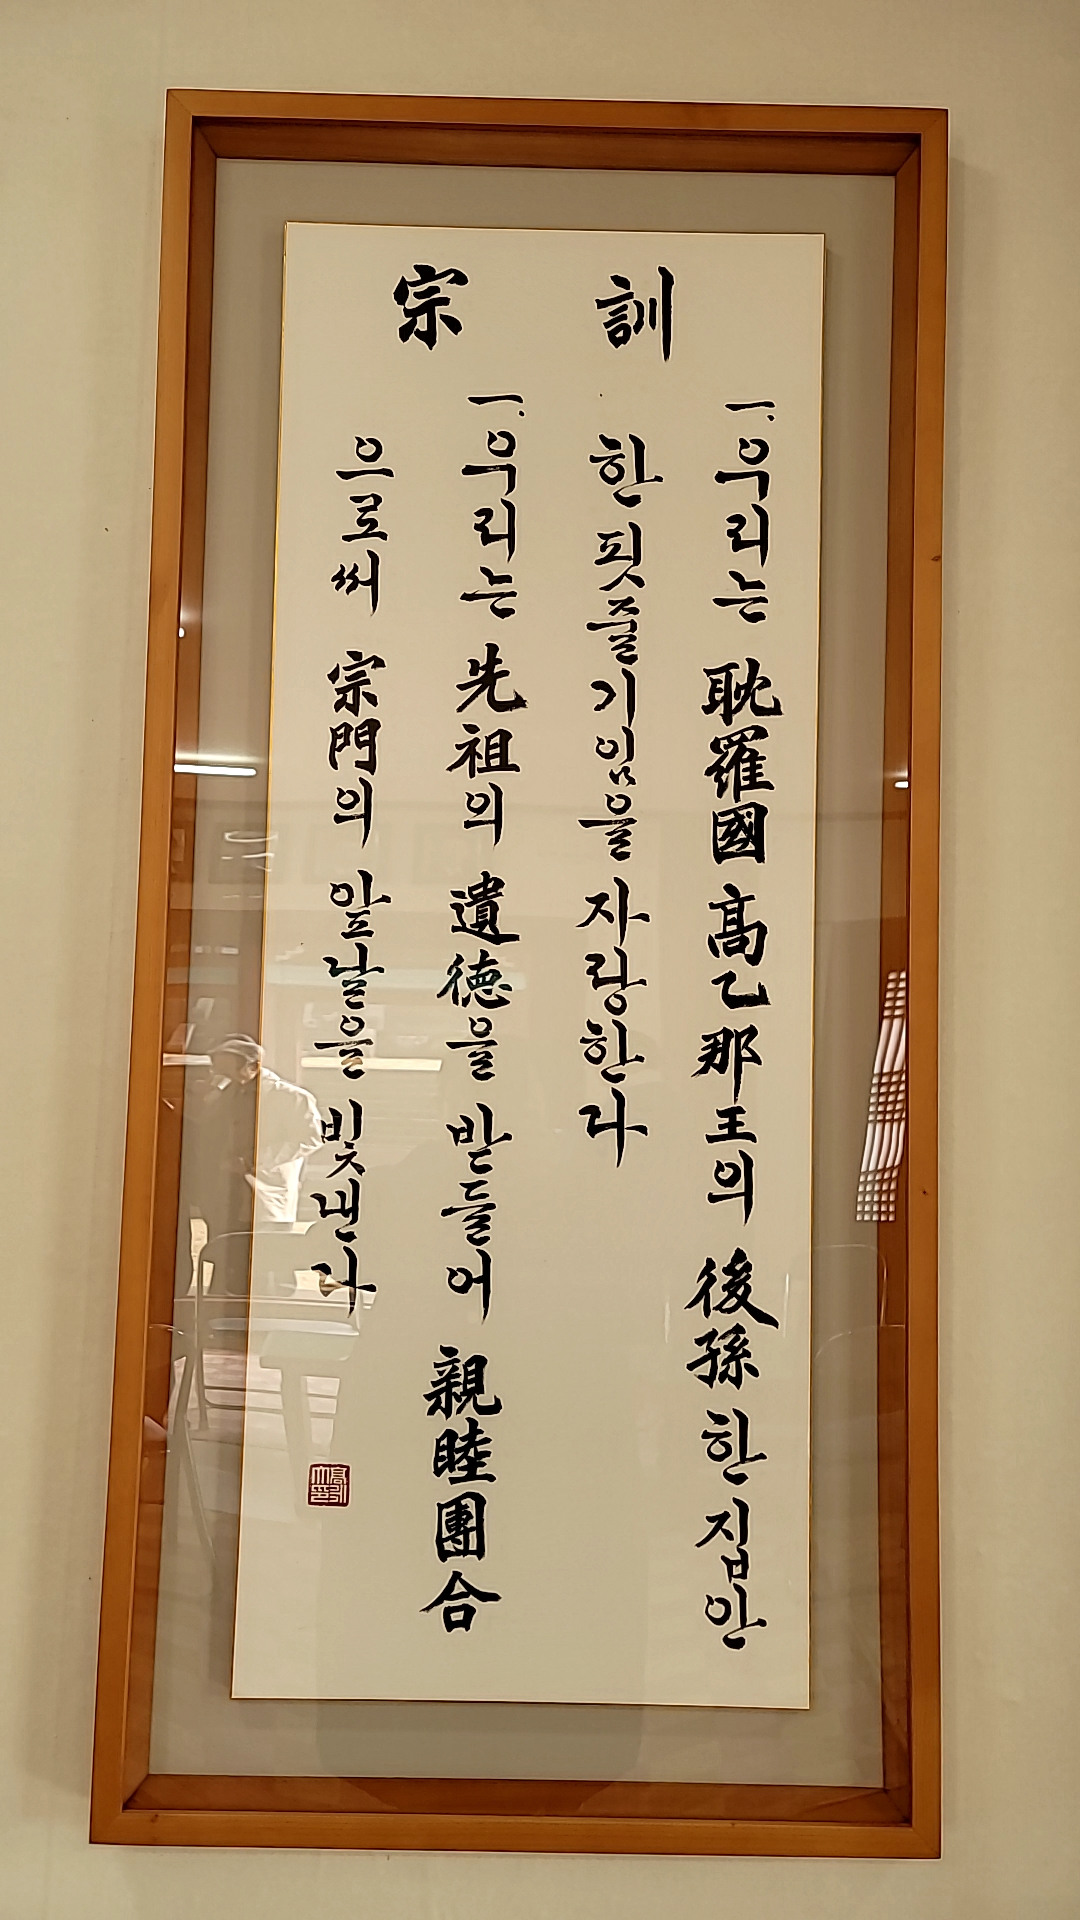 宗訓
一. 우리는 耽羅國 高乙那王의 後孫 한 집안
한 핏줄기임을 자랑한다
一. 우리는 先祖의 遺德을 받들어 親睦團合
으로써 宗門의 앞날을 빛낸다